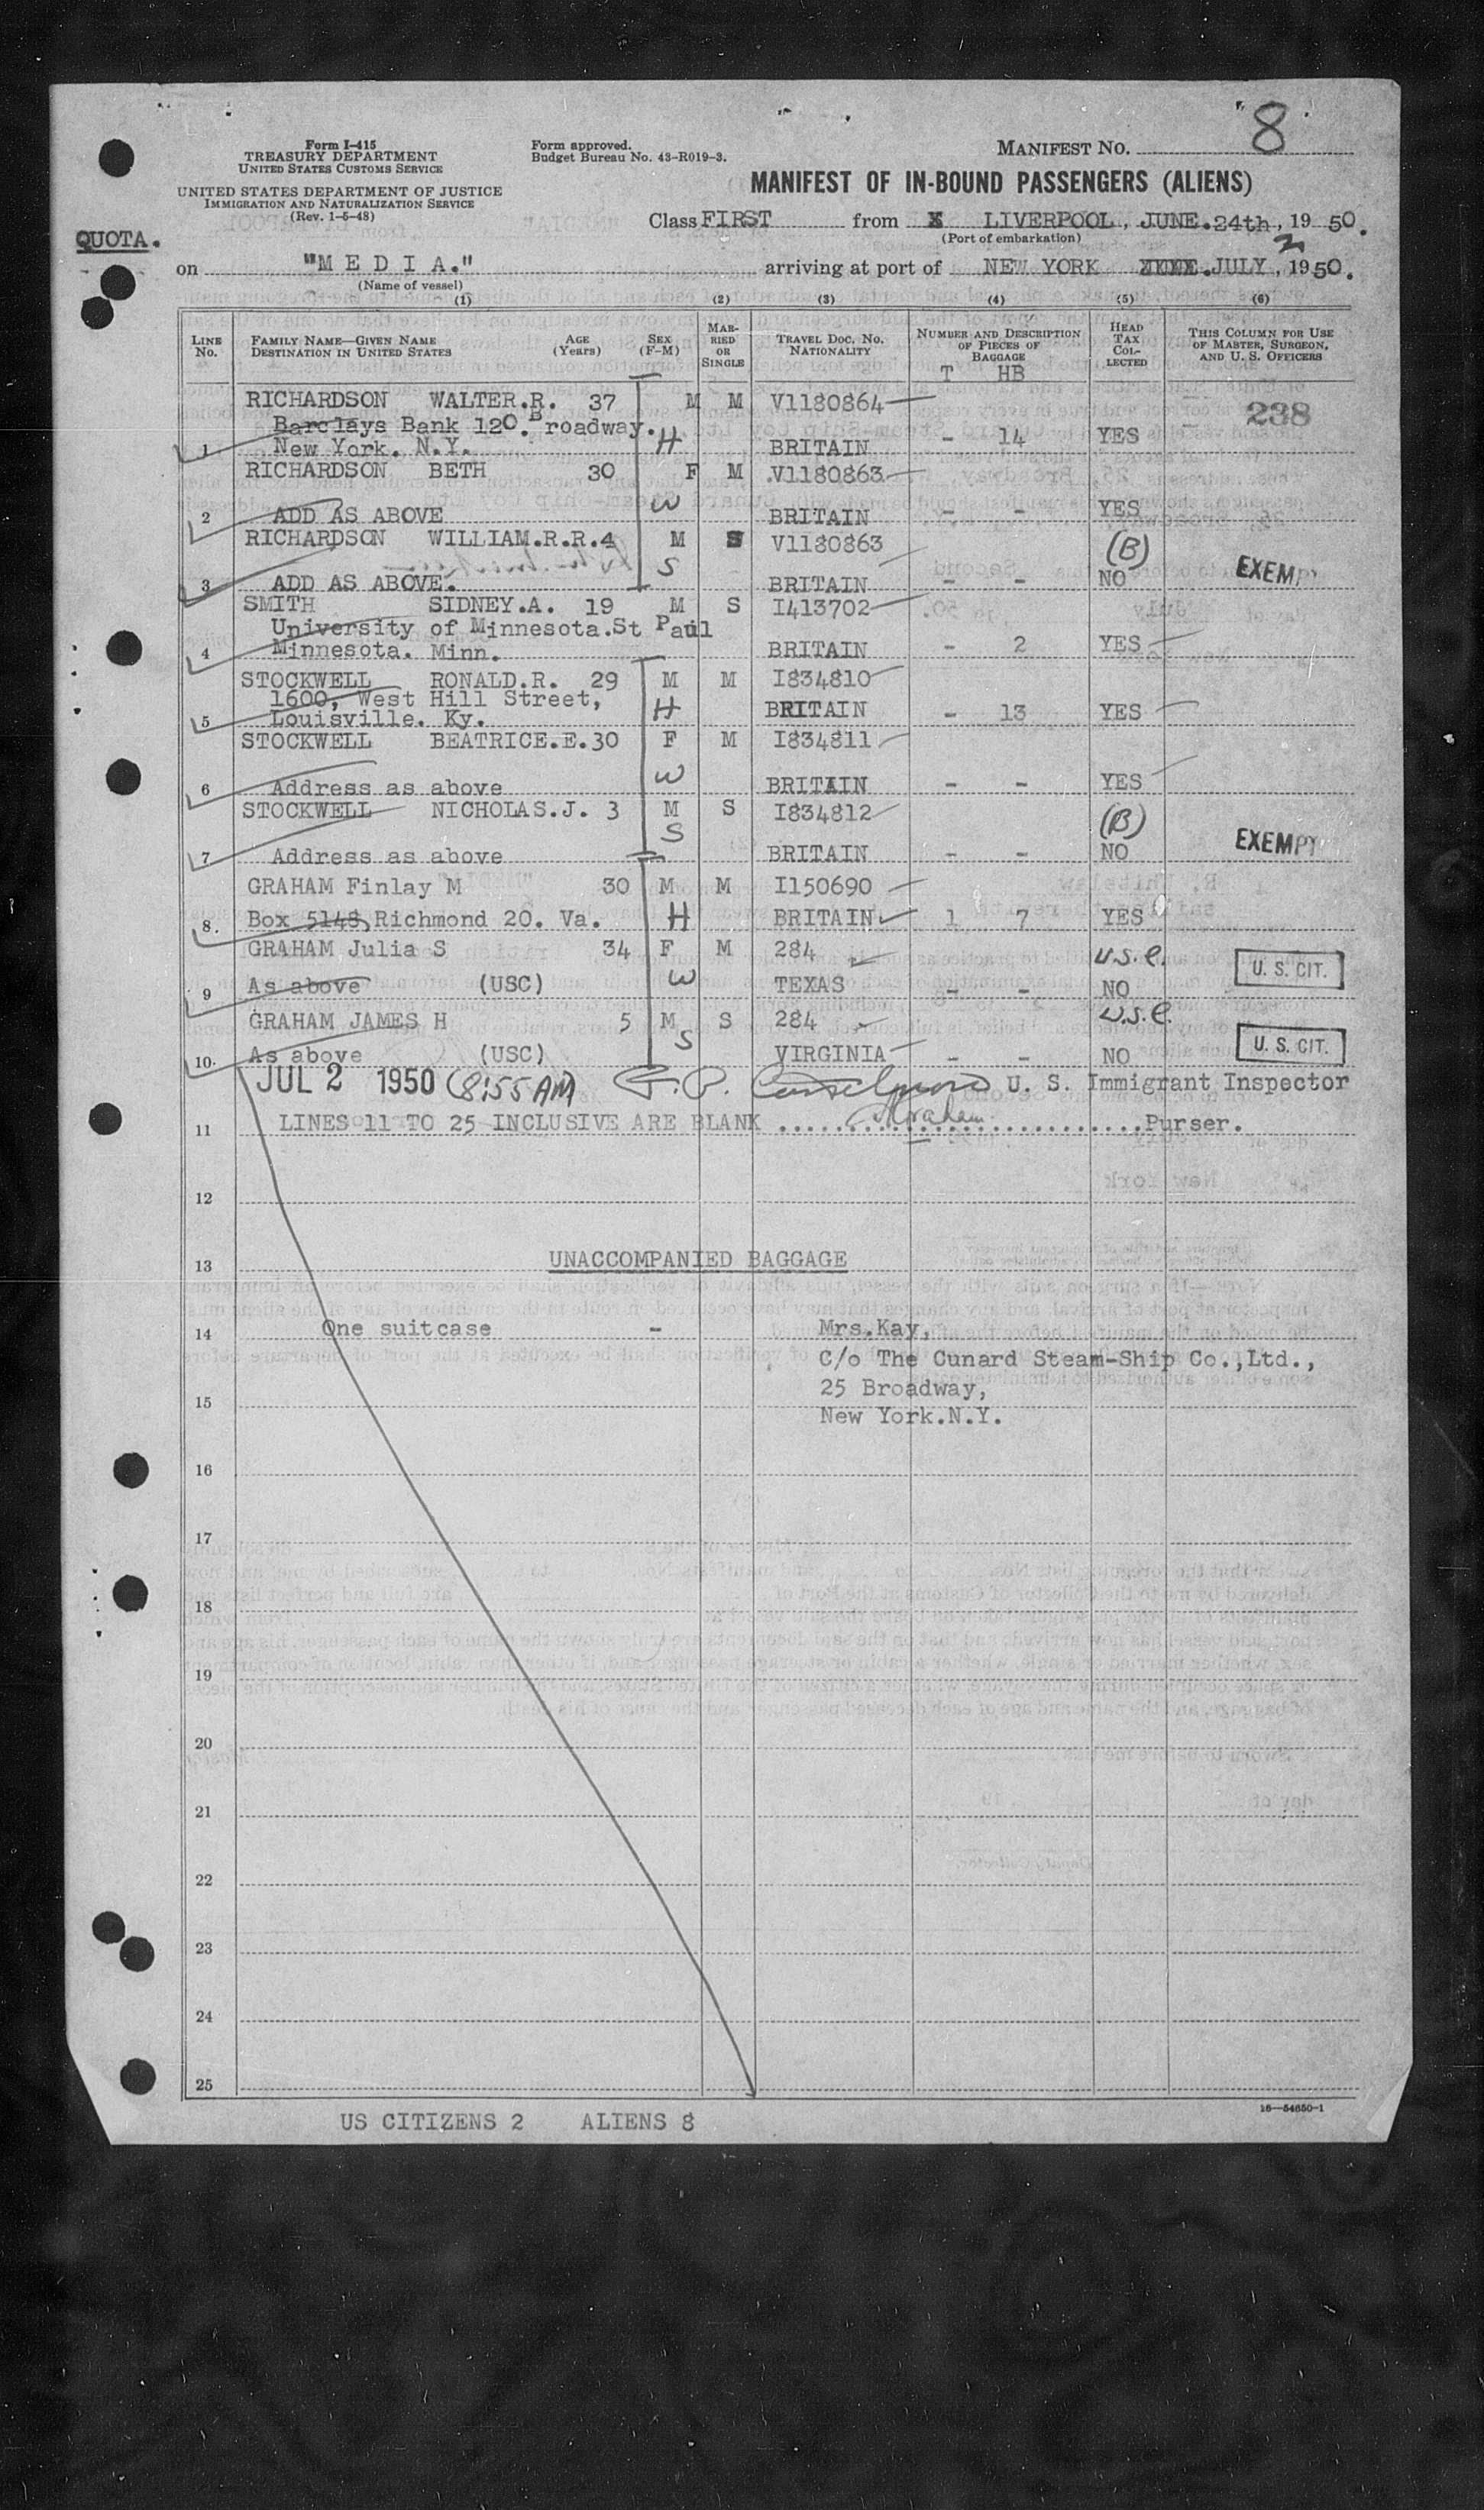 8
Form I-415
TREASURY DEPARTMENT
UNITED STATES CUSTOMS SERVICE
UNITED STATES DEPARTMENT OF JUSTICE
IMMIGRATION AND NATURALIZATION SERVICE
(Rev. 1-5-48)
Form approved.
Budget Bureau No. 43-R019-3.
MANIFEST NO. 8
MANIFEST OF IN-BOUND PASSENGERS (ALIENS)
QUOTA.
Class FIRST from X LIVERPOOL, JUNE.24th, 19 50.
(Port of embarkation)
on "M E D I A." arriving at port of NEW YORK JULY 2, 1950.
(Name of vessel)
(1) (2) (3) (4) (5) (6)
LINE No. FAMILY NAME—GIVEN NAME DESTINATION IN UNITED STATES AGE (Years) SEX (F-M) MARRIED OR SINGLE TRAVEL DOC. NO. NATIONALITY NUMBER AND DESCRIPTION OF PIECES OF BAGGAGE HEAD TAX COLLECTED THIS COLUMN FOR USE OF MASTER, SURGEON, AND U. S. OFFICERS
T HB
RICHARDSON WALTER.R. 37 M M V1180864
238
Barclays Bank 120. Broadway. H
1 New York. N.Y. BRITAIN - 14 YES
RICHARDSON BETH 30 F M V1180863
W
2 ADD AS ABOVE BRITAIN - - YES
RICHARDSON WILLIAM.R.R.4 M S V1180863 (B)
S
3 ADD AS ABOVE. BRITAIN - - NO EXEMPT
SMITH SIDNEY.A. 19 M S I413702
University of Minnesota.St Paul
4 Minnesota. Minn. BRITAIN - 2 YES
STOCKWELL RONALD.R. 29 M M I834810
1600, West Hill Street, H
5 Louisville. Ky. BRITAIN - 13 YES
STOCKWELL BEATRICE.E.30 F M I834811
W
6 Address as above BRITAIN - - YES
STOCKWELL NICHOLAS.J. 3 M S I834812 (B)
S
7 Address as above BRITAIN - - NO EXEMPT
GRAHAM Finlay M 30 M M I150690
8. Box 5148, Richmond 20. Va. H BRITAIN 1 7 YES
GRAHAM Julia S 34 F M 284 U.S.C.
U. S. CIT.
9 As above (USC) W TEXAS - - NO
GRAHAM JAMES H 5 M S 284 U.S.C.
S U. S. CIT.
10. As above (USC) VIRGINIA - - NO
JUL 2 1950 (8:55 AM) U. S. Immigrant Inspector
11 LINES 11 TO 25 INCLUSIVE ARE BLANK .......... Purser.
12
13 UNACCOMPANIED BAGGAGE
14 One suitcase - Mrs.Kay,
C/o The Cunard Steam-Ship Co.,Ltd.,
15 25 Broadway,
New York.N.Y.
16
17
18
19
20
21
22
23
24
25
16—54650-1
US CITIZENS 2 ALIENS 8